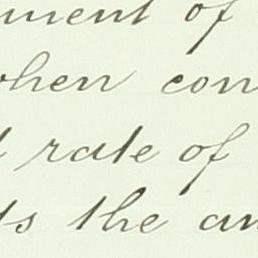 ment of
when con
rate of
ts the am